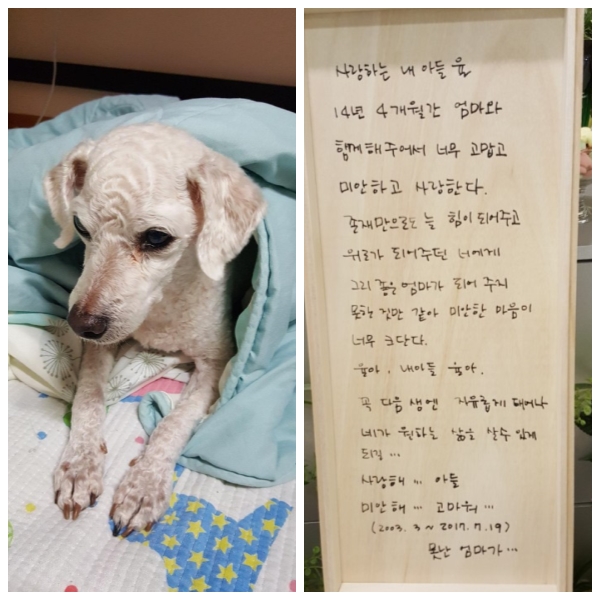 사랑하는 내 아들 율
14년 4개월간 엄마와
함께해주어서 너무 고맙고
미안하고 사랑한다.
존재만으로도 늘 힘이 되어주고
위로가 되어주던 너에게
그리 좋은 엄마가 되어 주지
못한 것만 같아 미안한 마음이
너무 크단다.
율아. 내아들 율아.
꼭 다음 생엔 자유롭게 태어나
네가 원하는 삶을 살수 있게
되길 ...
사랑해 ... 아들
미안해 ... 고마워 ...
(2003. 3 ~ 2017. 7. 19)
못난 엄마가 ...